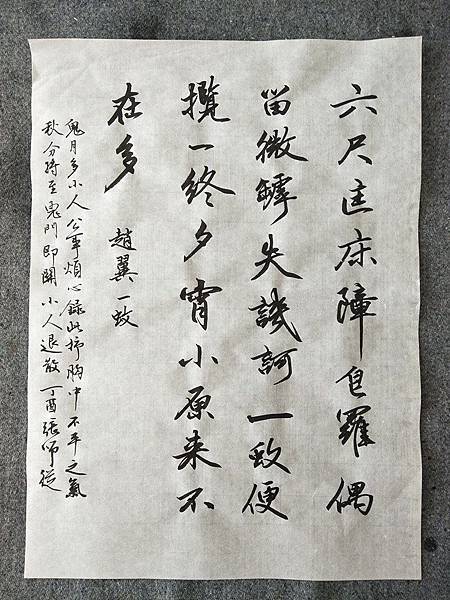 六尺匡床障皀羅偶
畱微罅失譏訶一蚊便
攪一終夕宵小原来不
在多 趙翼一蚊
鬼月多小人公事煩心錄此抒胸中不平之氣
秋分將至鬼門即關小人退散 丁酉張師從